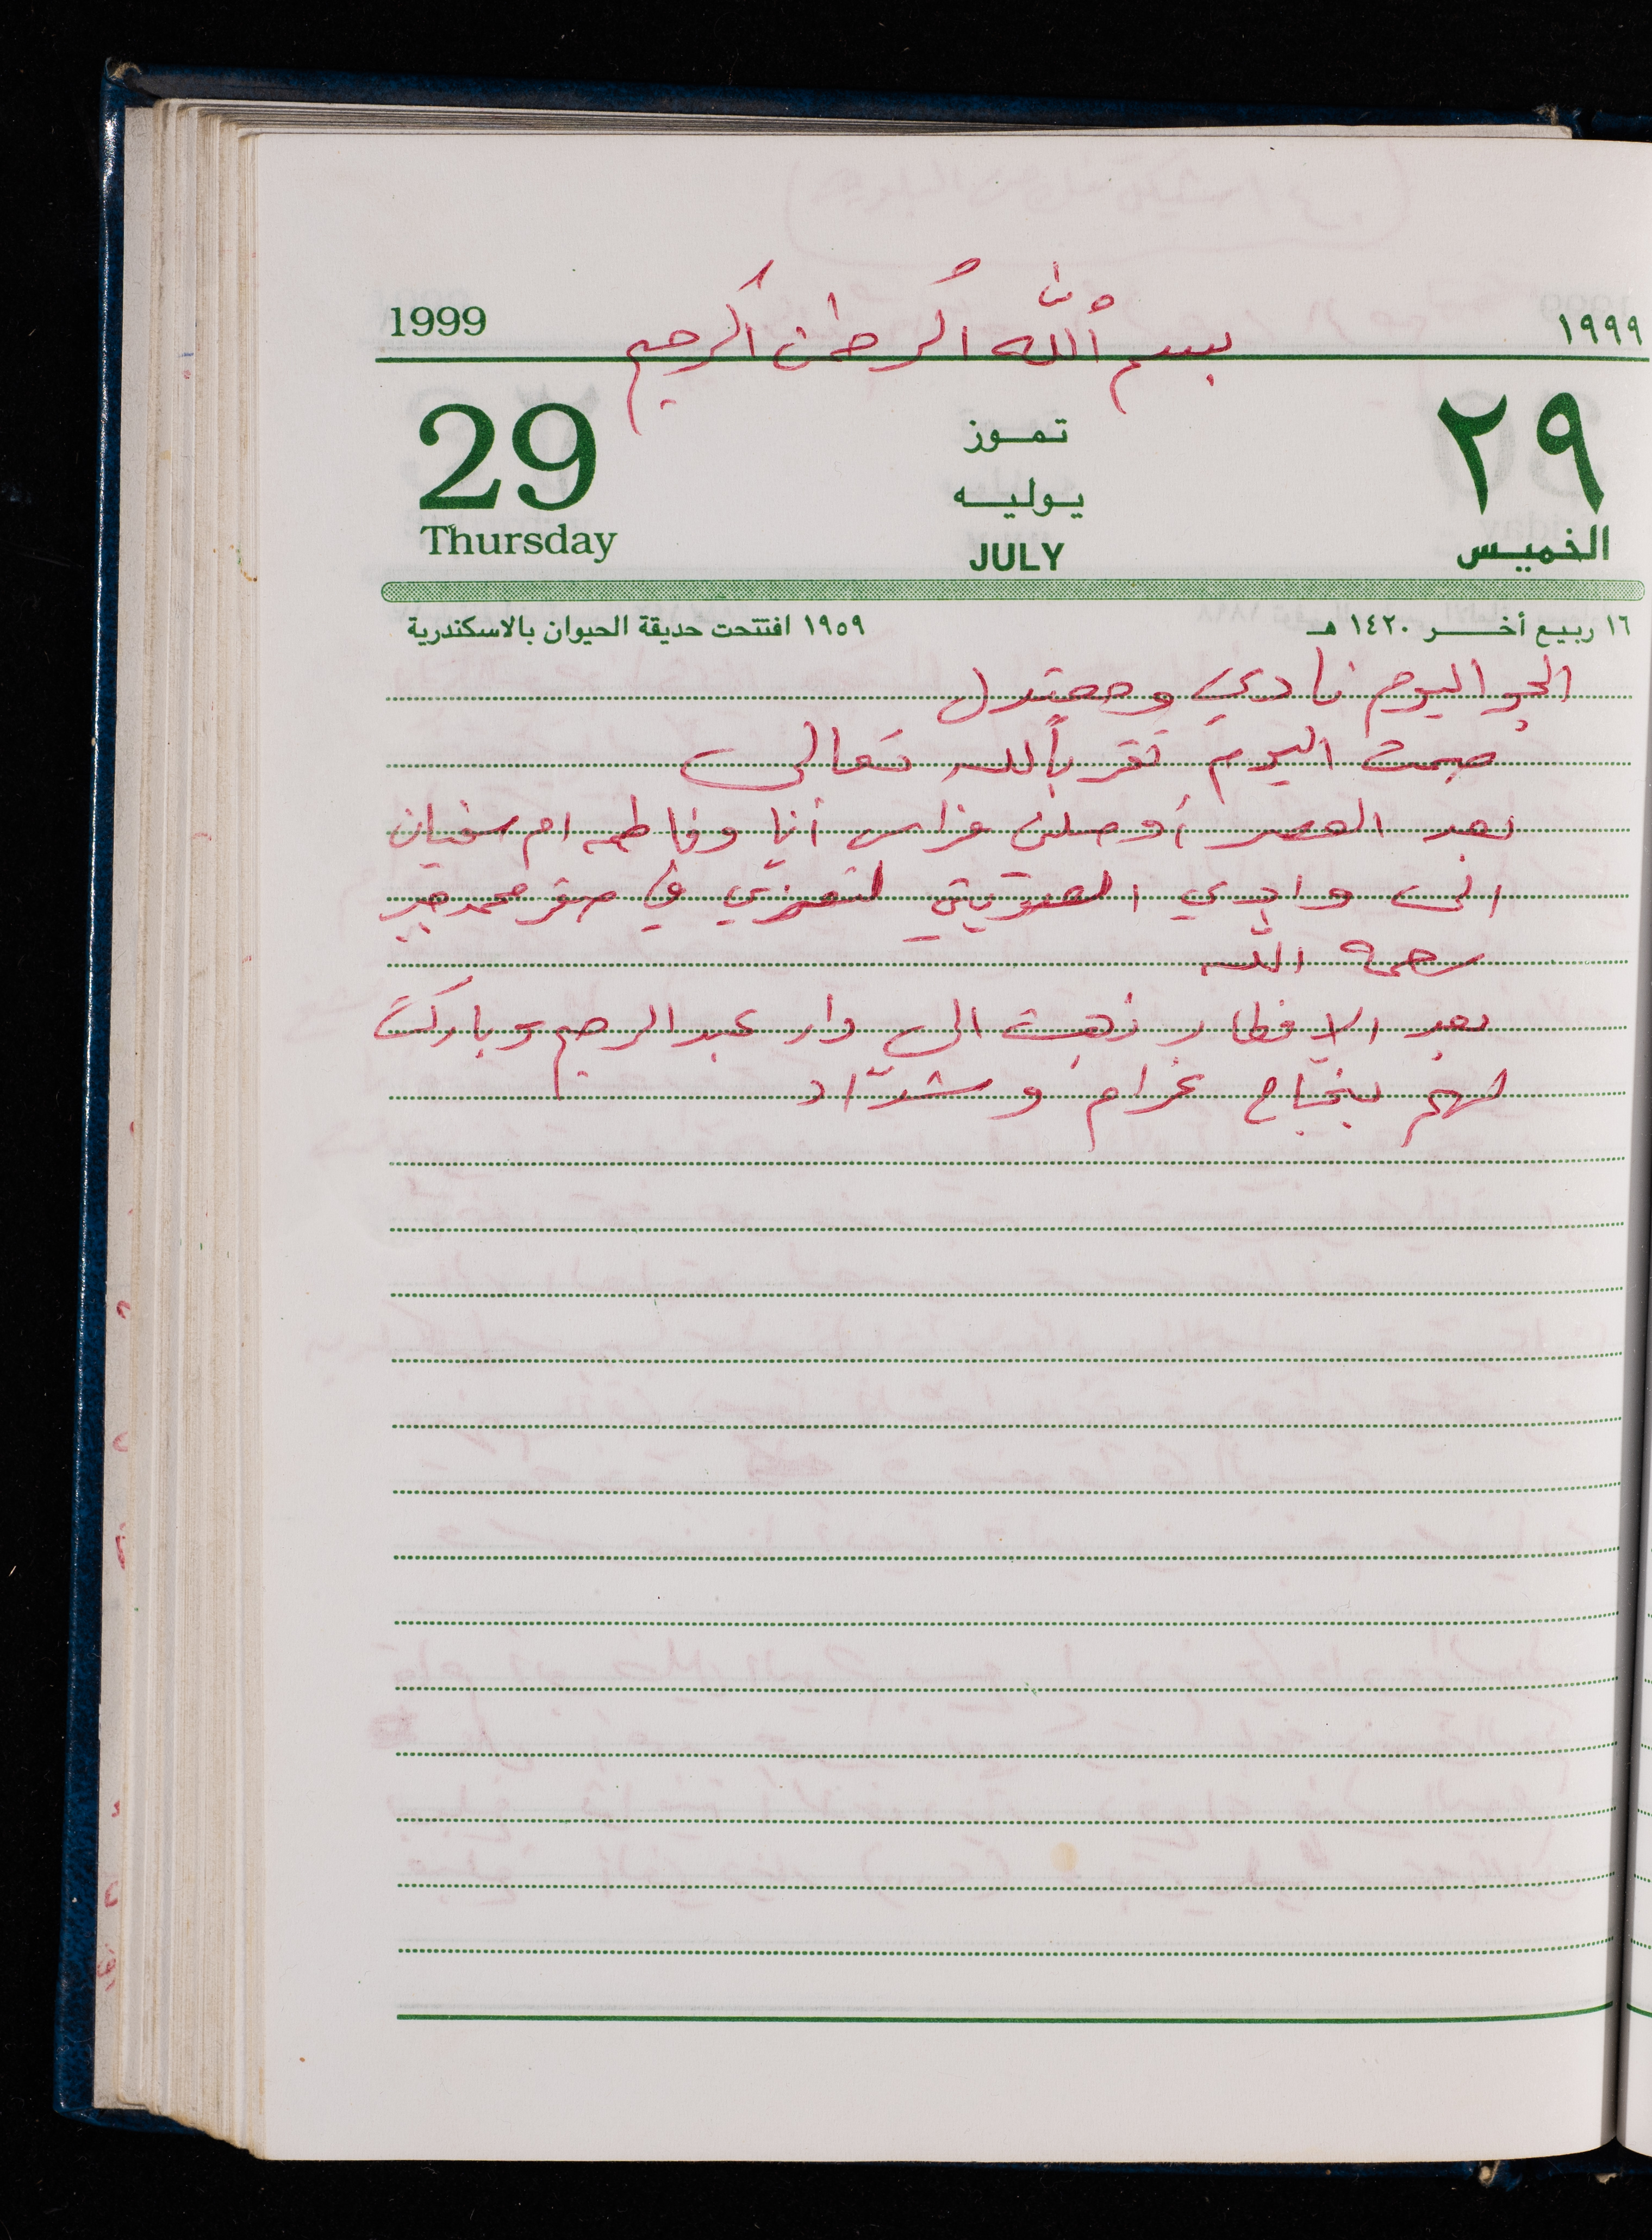 بسم الله الرحمن الرحيم
1999 ١٩٩٩
29 تموز ٢٩
يوليه
Thursday JULY الخميس
١٦ ربيع أخر ١٤٢٠ هـ ١٩٥٩ افتتحت حديقة الحيوان بالاسكندرية
الجو اليوم نادي ومعتدل
صمت اليوم تقرباً لله تعالى
بعد العصر أوصلن فراس أنا وفاطمه ام سفيان
الى وادي لنعزي في صقر محمد
رحمه الله
بعد الافطار ذهبت الى دار عبد الرحيم وباركت
لهم بنجاح غرام وشدّاد